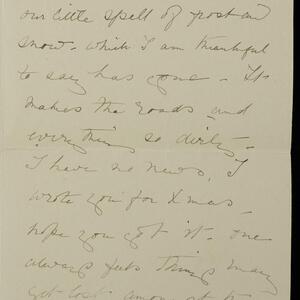 our little spell of frost and
snow - which I am thankful
to say has gone - It
makes the roads and
everything so dirty -
I have no news, I
wrote you for Xmas -
hope you got it - one
always feels things may
get lost